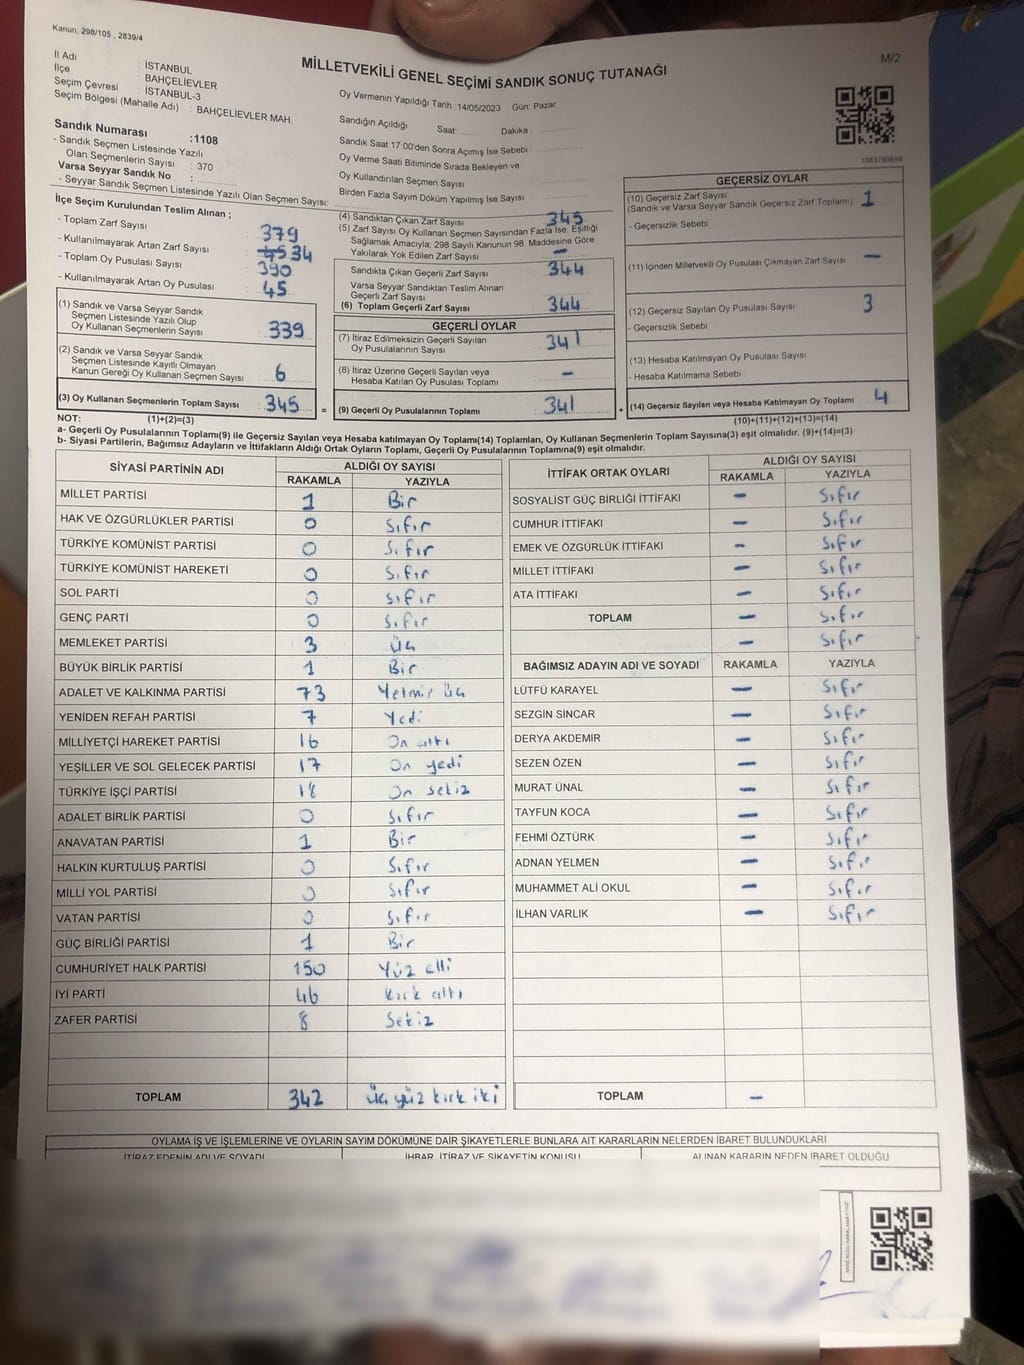 Kanun, 298/105 , 2839/4
M/2
MİLLETVEKİLİ GENEL SEÇİMİ SANDIK SONUÇ TUTANAĞI
İl Adı : İSTANBUL
İlçe : BAHÇELİEVLER
Seçim Çevresi : İSTANBUL-3
Seçim Bölgesi (Mahalle Adı) : BAHÇELİEVLER MAH.
Sandık Numarası :1108
- Sandık Seçmen Listesinde Yazılı
Olan Seçmenlerin Sayısı : 370
Varsa Seyyar Sandık No :
- Seyyar Sandık Seçmen Listesinde Yazılı Olan Seçmen Sayısı:
Oy Vermenin Yapıldığı Tarih :14/05/2023 Gün: Pazar
Sandığın Açıldığı Saat: Dakika :
Sandık Saat 17:00'den Sonra Açımış İse Sebebi :
Oy Verme Saati Bitiminde Sırada Bekleyen ve
Oy Kullandırılan Seçmen Sayısı :
Birden Fazla Sayım Döküm Yapılmış İse Sayısı :
1083780659
İlçe Seçim Kurulundan Teslim Alınan ;
- Toplam Zarf Sayısı : 379
- Kullanılmayarak Artan Zarf Sayısı : 34
- Toplam Oy Pusulası Sayısı : 390
- Kullanılmayarak Artan Oy Pusulası : 45
(1) Sandık ve Varsa Seyyar Sandık
Seçmen Listesinde Yazılı Olup
Oy Kullanan Seçmenlerin Sayısı : 339
(2) Sandık ve Varsa Seyyar Sandık
Seçmen Listesinde Kayıtlı Olmayan
Kanun Gereği Oy Kullanan Seçmen Sayısı : 6
(3) Oy Kullanan Seçmenlerin Toplam Sayısı : 345 =
(4) Sandıktan Çıkan Zarf Sayısı : 345
(5) Zarf Sayısı Oy Kullanan Seçmen Sayısından Fazla İse, Eşitliği
Sağlamak Amacıyla; 298 Sayılı Kanunun 98. Maddesine Göre
Yakılarak Yok Edilen Zarf Sayısı : –
Sandıkta Çıkan Geçerli Zarf Sayısı : 344
Varsa Seyyar Sandıktan Teslim Alınan
Geçerli Zarf Sayısı :
(6) Toplam Geçerli Zarf Sayısı : 344
GEÇERLİ OYLAR
(7) İtiraz Edilmeksizin Geçerli Sayılan
Oy Pusulalarının Sayısı : 341
(8) İtiraz Üzerine Geçerli Sayılan veya
Hesaba Katılan Oy Pusulası Toplamı : –
(9) Geçerli Oy Pusulalarının Toplamı : 341 +
GEÇERSİZ OYLAR
(10) Geçersiz Zarf Sayısı : 1
(Sandık ve Varsa Seyyar Sandık Geçersiz Zarf Toplamı)
- Geçersizlik Sebebi
(11) İçinden Milletvekili Oy Pusulası Çıkmayan Zarf Sayısı : –
(12) Geçersiz Sayılan Oy Pusulası Sayısı : 3
- Geçersizlik Sebebi
(13) Hesaba Katılmayan Oy Pusulası Sayısı :
- Hesaba Katılmama Sebebi
(14) Geçersiz Sayılan veya Hesaba Katılmayan Oy Toplamı : 4
NOT: (1)+(2)=(3) (10)+(11)+(12)+(13)=(14)
a- Geçerli Oy Pusulalarının Toplamı(9) ile Geçersiz Sayılan veya Hesaba katılmayan Oy Toplamı(14) Toplamları, Oy Kullanan Seçmenlerin Toplam Sayısına(3) eşit olmalıdır. (9)+(14)=(3)
b- Siyasi Partilerin, Bağımsız Adayların ve İttifakların Aldığı Ortak Oyların Toplamı, Geçerli Oy Pusulalarının Toplamına(9) eşit olmalıdır.
SİYASİ PARTİNİN ADI ALDIĞI OY SAYISI
RAKAMLA YAZIYLA
MİLLET PARTİSİ 1 Bir
HAK VE ÖZGÜRLÜKLER PARTİSİ 0 Sıfır
TÜRKİYE KOMÜNİST PARTİSİ 0 Sıfır
TÜRKİYE KOMÜNİST HAREKETİ 0 Sıfır
SOL PARTİ 0 Sıfır
GENÇ PARTİ 0 Sıfır
MEMLEKET PARTİSİ 3 Üç
BÜYÜK BİRLİK PARTİSİ 1 Bir
ADALET VE KALKINMA PARTİSİ 73 Yetmiş üç
YENİDEN REFAH PARTİSİ 7 Yedi
MİLLİYETÇİ HAREKET PARTİSİ 16 On altı
YEŞİLLER VE SOL GELECEK PARTİSİ 17 On yedi
TÜRKİYE İŞÇİ PARTİSİ 18 On sekiz
ADALET BİRLİK PARTİSİ 0 Sıfır
ANAVATAN PARTİSİ 1 Bir
HALKIN KURTULUŞ PARTİSİ 0 Sıfır
MİLLİ YOL PARTİSİ 0 Sıfır
VATAN PARTİSİ 0 Sıfır
GÜÇ BİRLİĞİ PARTİSİ 1 Bir
CUMHURİYET HALK PARTİSİ 150 Yüz elli
İYİ PARTİ 46 kırk altı
ZAFER PARTİSİ 8 Sekiz
TOPLAM 342 üç yüz kırk iki
İTTİFAK ORTAK OYLARI ALDIĞI OY SAYISI
RAKAMLA YAZIYLA
SOSYALİST GÜÇ BİRLİĞİ İTTİFAKI – Sıfır
CUMHUR İTTİFAKI – Sıfır
EMEK VE ÖZGÜRLÜK İTTİFAKI – Sıfır
MİLLET İTTİFAKI – Sıfır
ATA İTTİFAKI – Sıfır
TOPLAM – Sıfır
– Sıfır
BAĞIMSIZ ADAYIN ADI VE SOYADI RAKAMLA YAZIYLA
LÜTFÜ KARAYEL – Sıfır
SEZGİN SİNCAR – Sıfır
DERYA AKDEMİR – Sıfır
SEZEN ÖZEN – Sıfır
MURAT ÜNAL – Sıfır
TAYFUN KOCA – Sıfır
FEHMİ ÖZTÜRK – Sıfır
ADNAN YELMEN – Sıfır
MUHAMMET ALİ OKUL – Sıfır
İLHAN VARLIK – Sıfır
TOPLAM –
OYLAMA İŞ VE İŞLEMLERİNE VE OYLARIN SAYIM DÖKÜMÜNE DAİR ŞİKAYETLERLE BUNLARA AİT KARARLARIN NELERDEN İBARET BULUNDUKLARI
İTİRAZ EDENİN ADI VE SOYADI İHBAR, İTİRAZ VE ŞİKAYETİN KONUSU ALINAN KARARIN NEDEN İBARET OLDUĞU